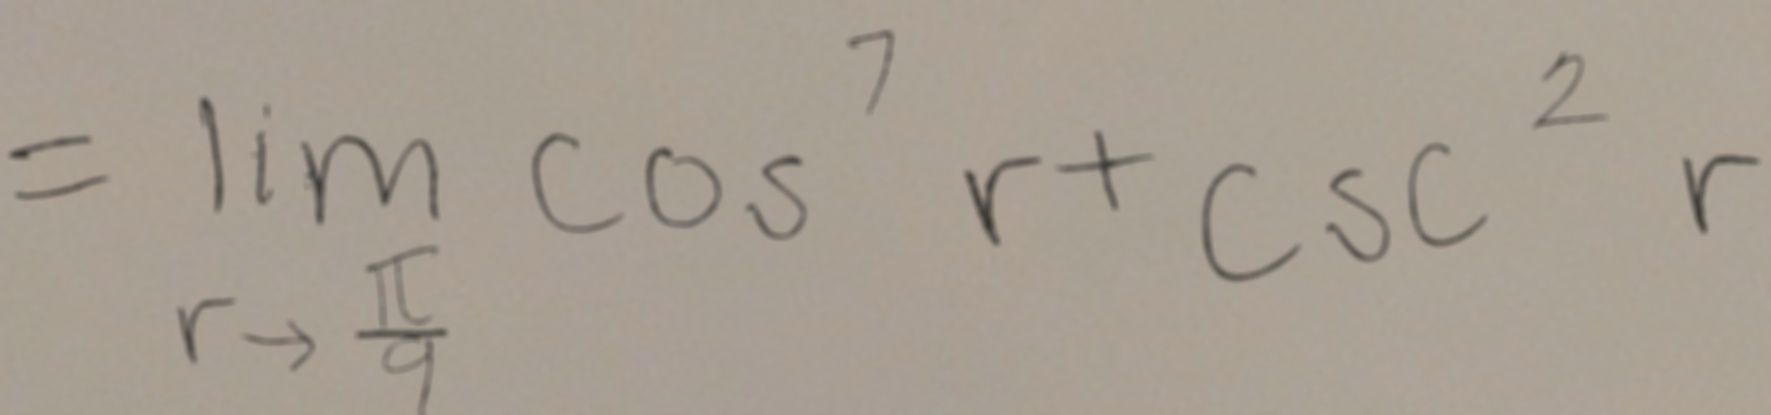 = lim_{r → \frac{π}{9}} cos^7 r + csc^2 r